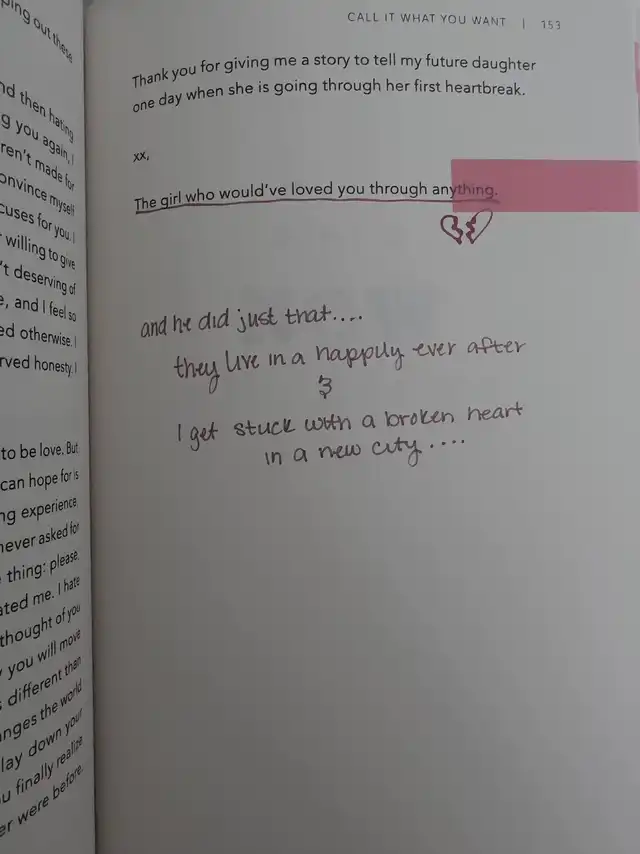 ping out these
nd then hating
g you again, I
ren't made for
onvince myself
cuses for you. I
willing to give
't deserving of
e, and I feel so
ed otherwise. I
rved honesty. I
to be love. But
can hope for is
ng experience.
never asked for
thing: please.
ated me. I hate
thought of you
you will move
different than
anges the world
lay down your
u finally realize
er were before.
CALL IT WHAT YOU WANT | 153
Thank you for giving me a story to tell my future daughter
one day when she is going through her first heartbreak.
xx,
The girl who would've loved you through anything.
and he did just that....
they live in a happily ever after
&
I get stuck with a broken heart
in a new city....